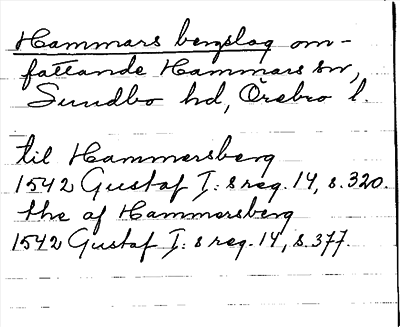 Hammars bergslag om-
fattande Hammars sn,
Sundbo hd, Örebro l.
til Hammersberg
1542 Gustaf I:s reg. 14, s. 320.
the af Hammersberg
1542 Gustaf I:s reg. 14, s. 377.